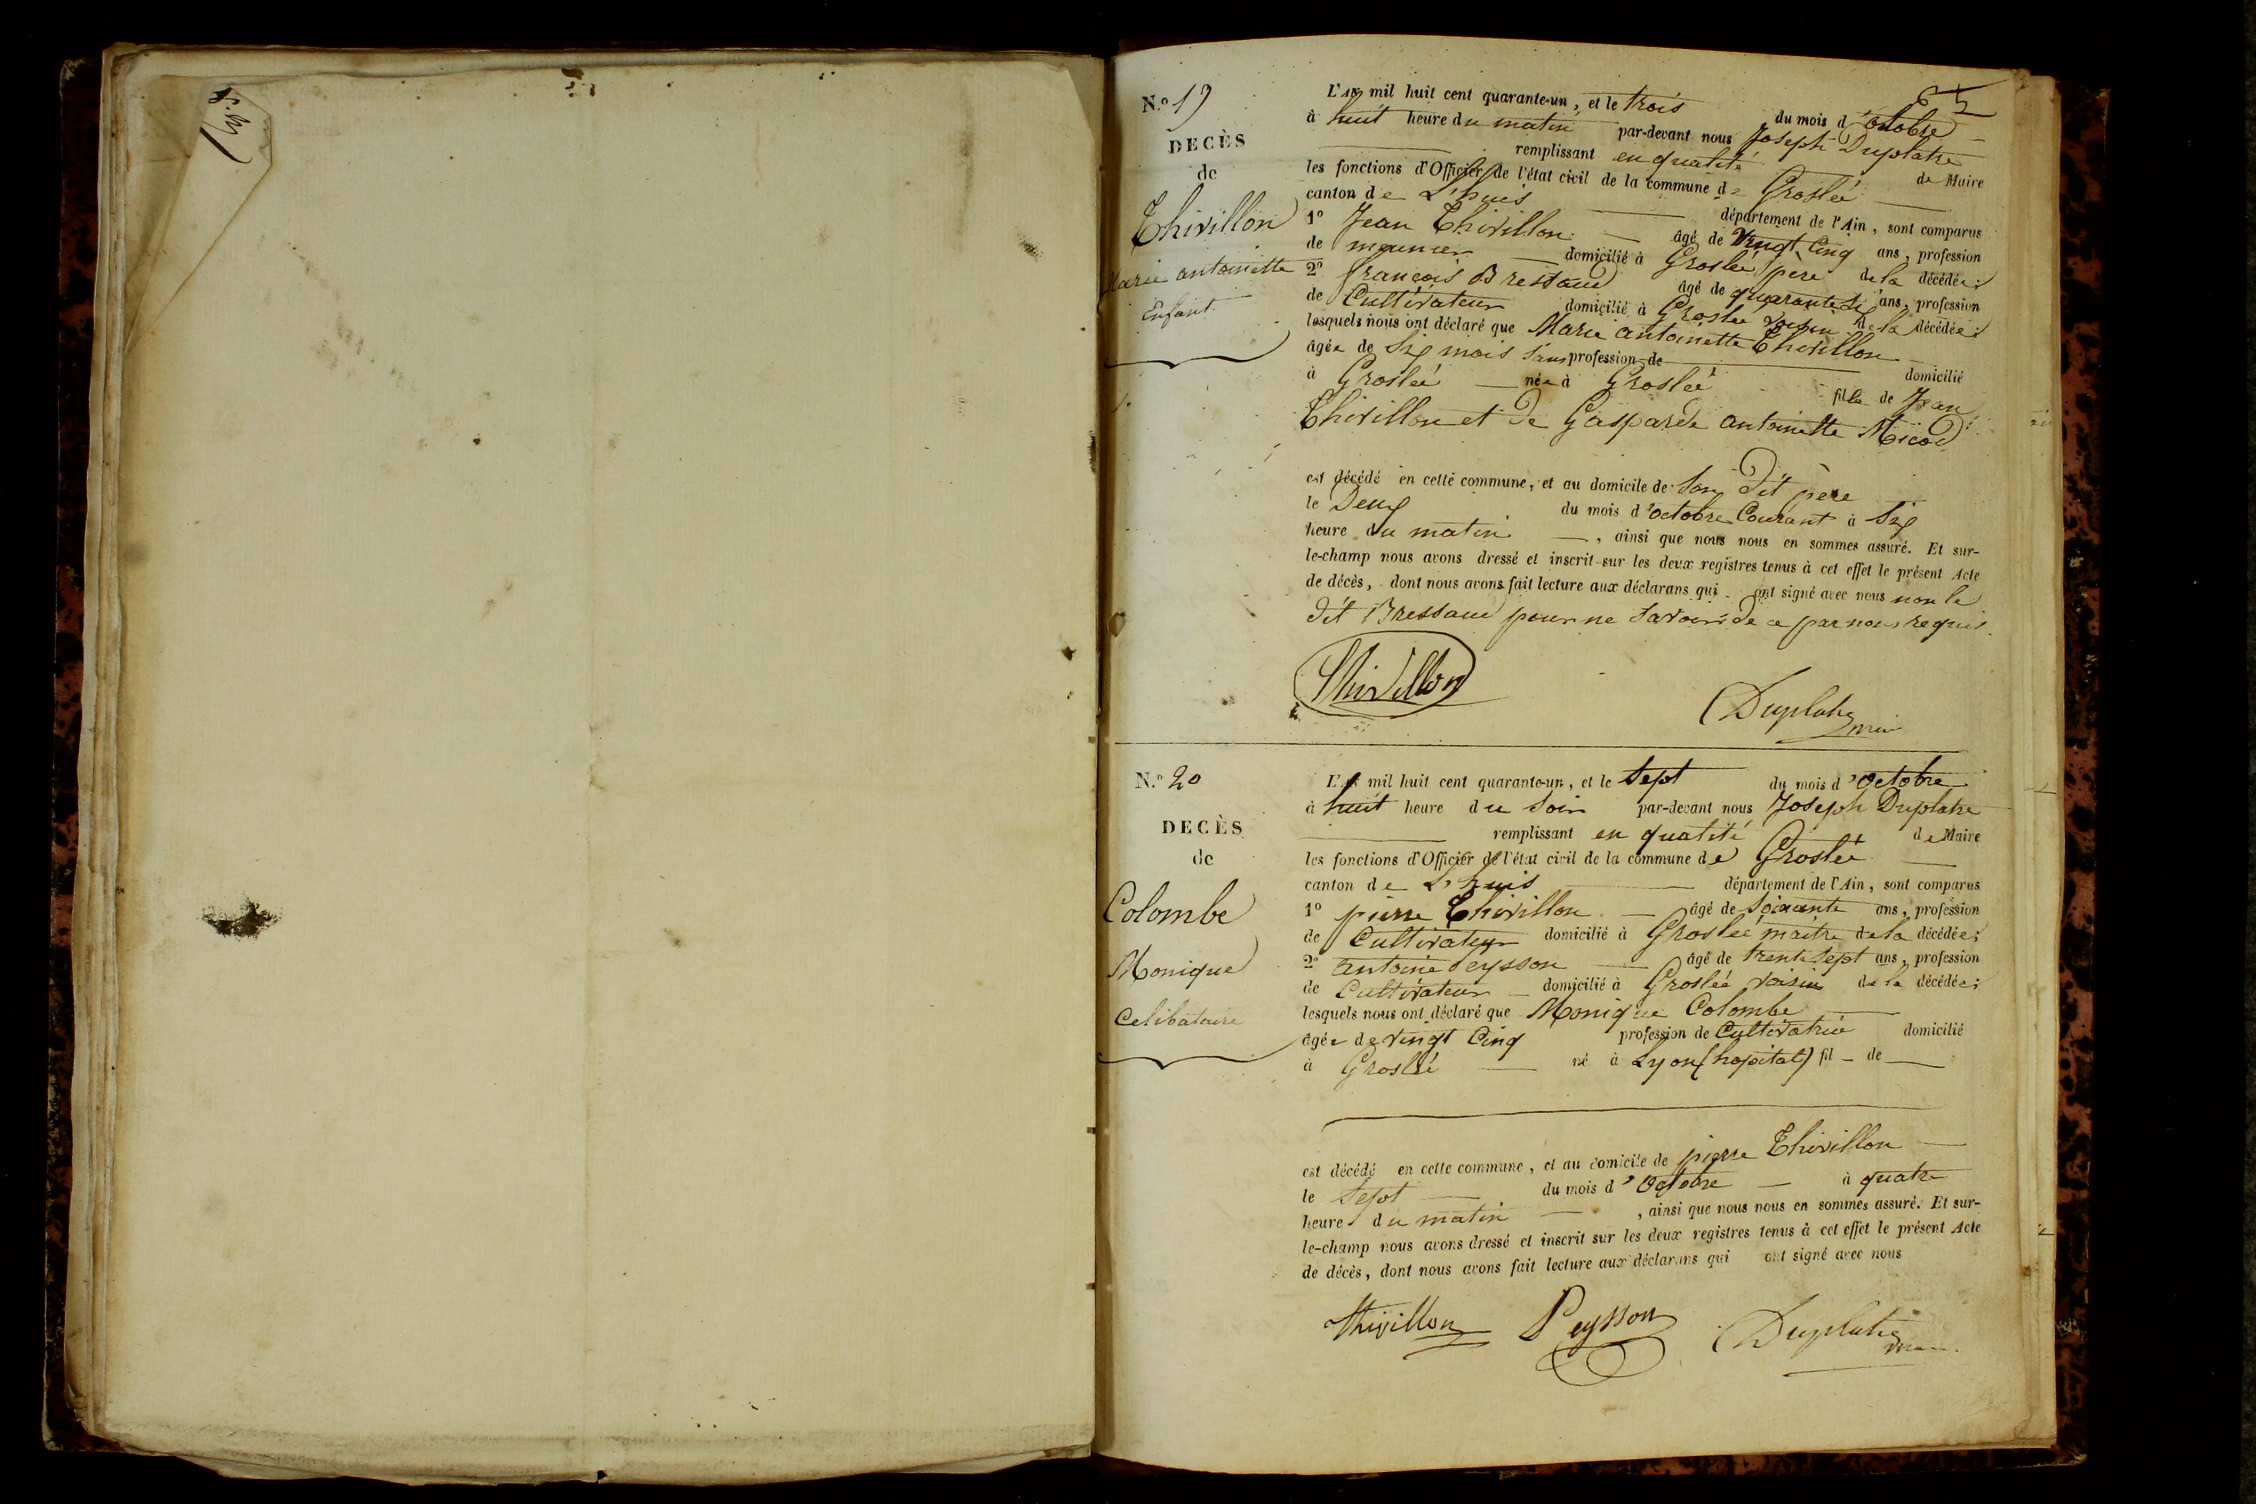 N.º 19
DECÈS
de
Thivillon
Marie antoinette
Enfant
L'An mil huit cent quarante-un, et le trois du mois d'octobre
à huit heure du matin par-devant nous Joseph Duplatre
remplissant en qualité de Maire
les fonctions d'Officier de l'état civil de la commune de Groslée
canton de Lhuis département de l'Ain, sont comparus
1º Jean Thivillon âgé de vingt cinq ans, profession
de meunier domicilié à Groslée père de la décédée;
2º françois Bressaud âgé de quarante six ans, profession
de Cultivateur domicilié à Groslée voisin de la décédée;
lesquels nous ont déclaré que Marie antoinette Thivillon
âgée de six mois sans profession de domicilié
à Groslée née à Groslée fille de Jean
Thivillon et de Gasparde antoinette Micod
est décédé en cette commune, et au domicile de son dit père
le Deux du mois d'octobre Courant à six
heure du matin, ainsi que nous nous en sommes assuré. Et sur-
le-champ nous avons dressé et inscrit sur les deux registres tenus à cet effet le présent Acte
de décès, dont nous avons fait lecture aux déclarans qui ont signé avec nous non le
dit Bressaud pour ne savoir de ce par nous requis.
Thivillon
Duplatre
N.º 20
DECÈS
de
Colombe
Monique
Celibataire
L'An mil huit cent quarante-un, et le sept du mois d'octobre
à huit heure du soir par-devant nous Joseph Duplatre
remplissant en qualité de Maire
les fonctions d'Officier de l'état civil de la commune de Groslée
canton de Lhuis département de l'Ain, sont comparus
1º pierre Thivillon âgé de soixante ans, profession
de Cultivateur domicilié à Groslée maitre de la décédée;
2º antoine Peysson âgé de trente sept ans, profession
de Cultivateur domicilié à Groslée voisin de la décédée;
lesquels nous ont déclaré que Monique Colombe
âgée de vingt Cinq profession de Cultivatrice domicilié
à Groslée né à Lyon (hopital) fil de
est décédé en cette commune, et au domicile de pierre Thivillon
le sept du mois d'octobre à quatre
heure du matin, ainsi que nous nous en sommes assuré. Et sur-
le-champ nous avons dressé et inscrit sur les deux registres tenus à cet effet le présent Acte
de décès, dont nous avons fait lecture aux déclarans qui ont signé avec nous
Thivillon Peysson Duplatre